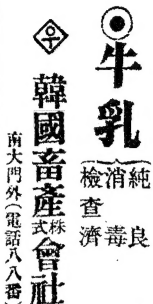 牛乳
純良
消毒
檢查濟
우
韓國畜產株式會社
南大門外(電話八八番)